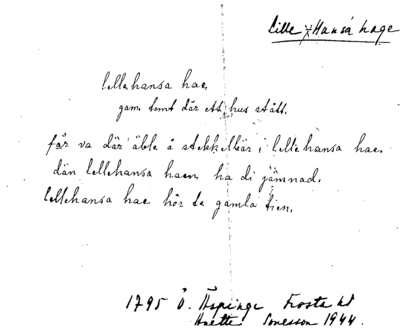 Lille Hanså hage
lillehansa hae
gam. tomt där ett hus stått.
får va där äble å stekkelbär i lillehansa hae
dän lillehansa haen ha di jämnad.
lillehansa hae hör te gamla tien.
1795 Ö. Äspinge Frosta hd
Anette Jonesson 1944.